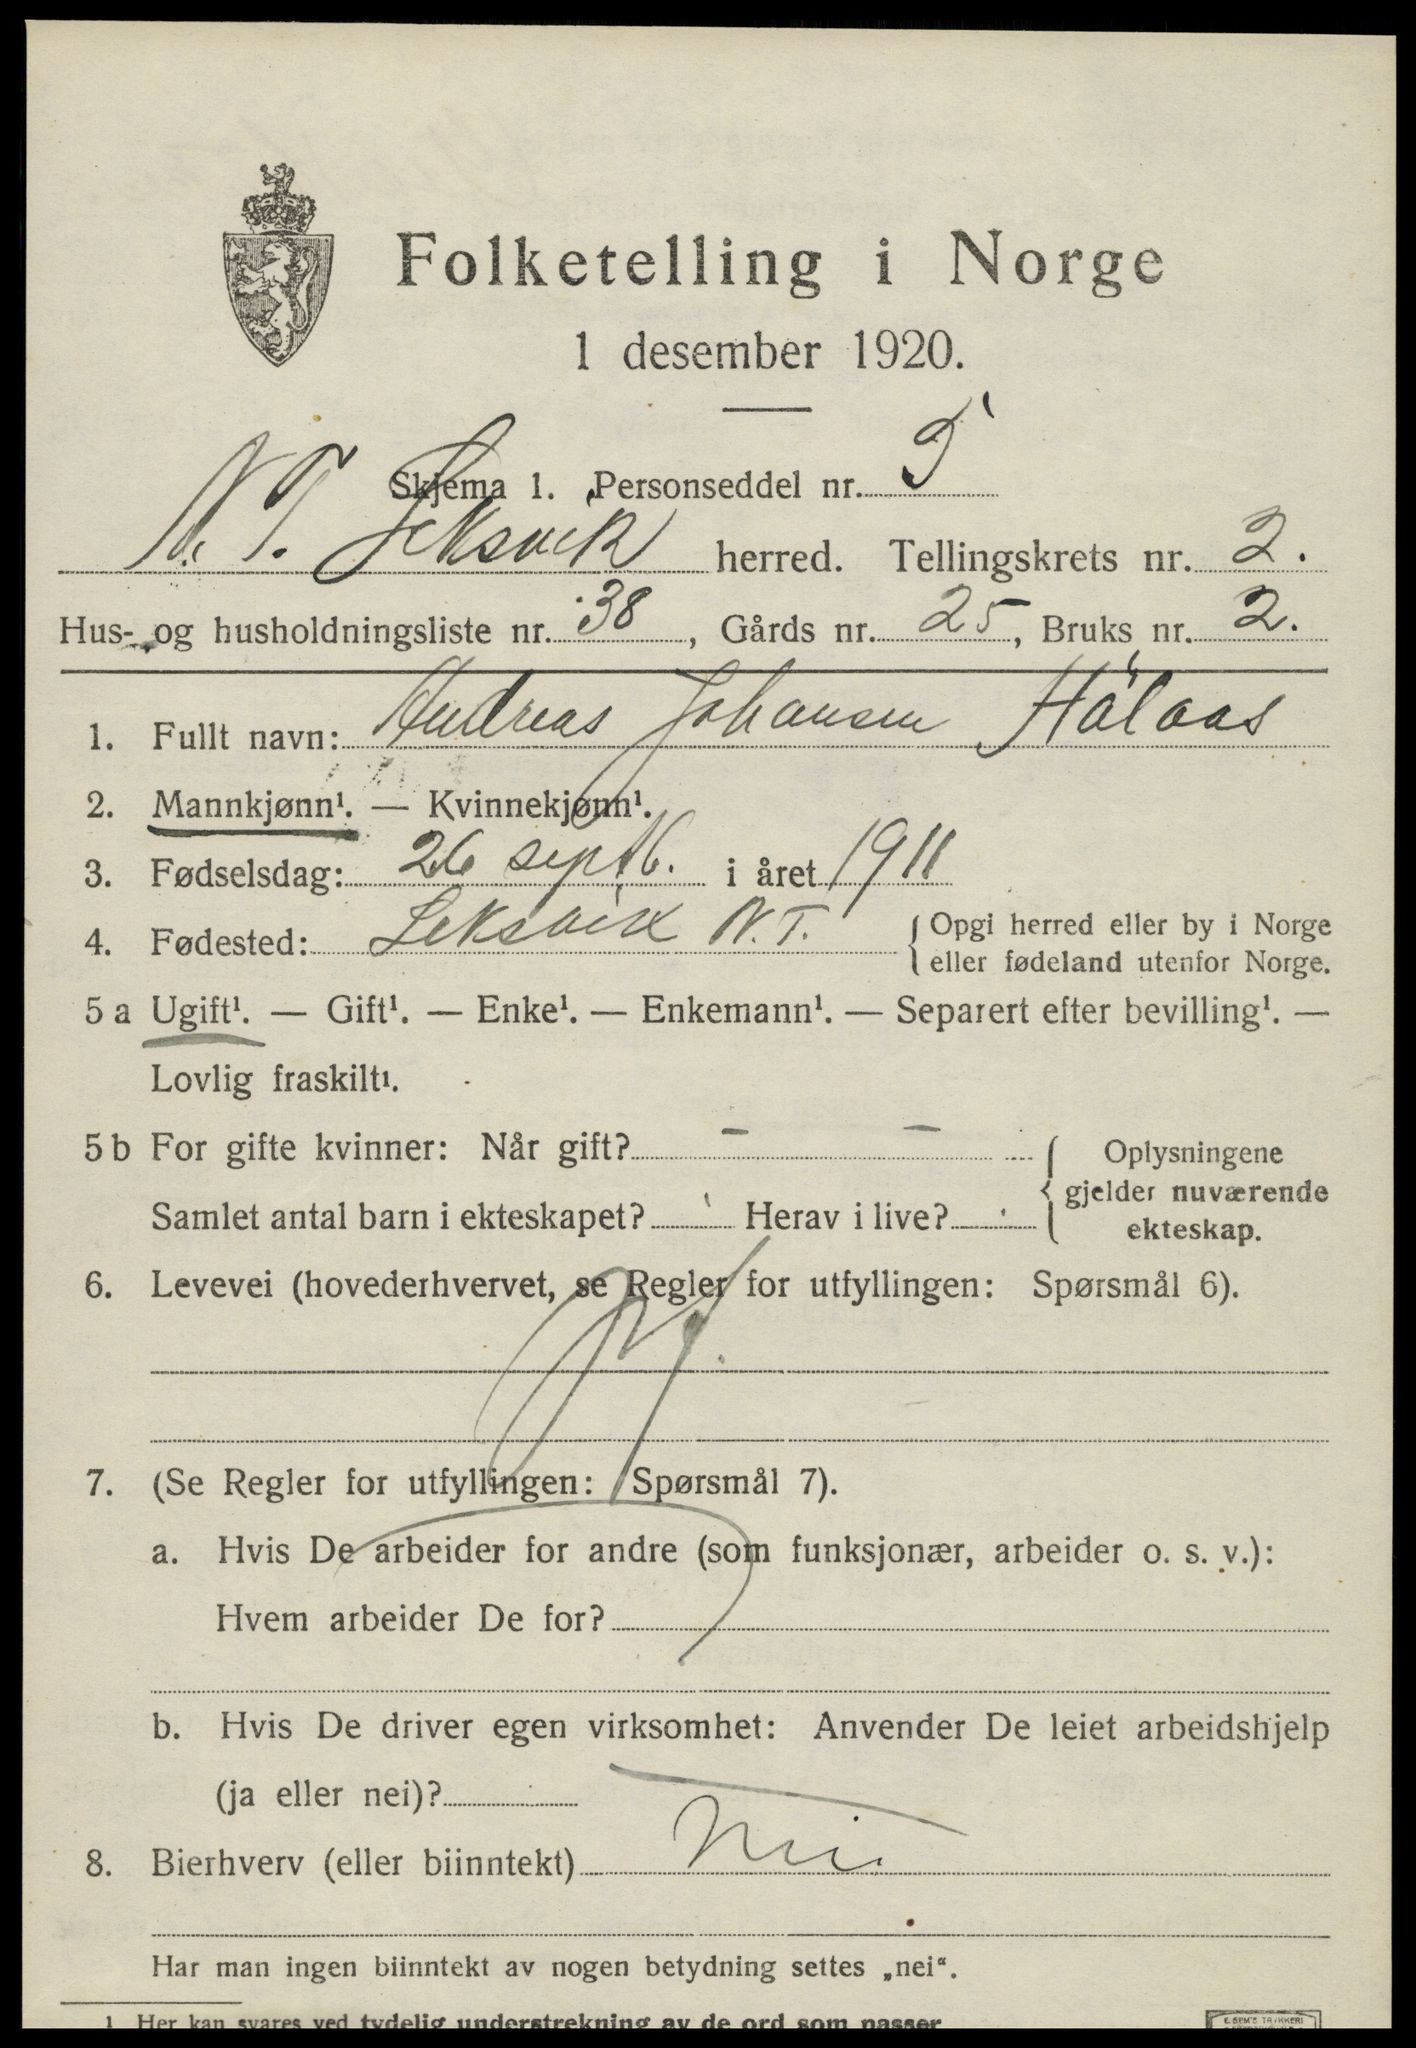 Folketelling i Norge
1 desember 1920.
Skjema 1. Personseddel nr. 5
N. T. Leksvik herred. Tellingskrets nr. 2.
Hus- og husholdningsliste nr. 38, Gårds nr. 25, Bruks nr. 2.
1. Fullt navn: Andreas Johansen Hålaas
2. Mannkjønn¹. — Kvinnekjønn¹.
3. Fødselsdag: 26 septb. i året 1911
4. Fødested: Leksvik N. T. {Opgi herred eller by i Norge
eller fødeland utenfor Norge.
5 a Ugift¹. — Gift¹. — Enke¹. — Enkemann¹. — Separert efter bevilling¹. —
Lovlig fraskilt¹.
5 b For gifte kvinner: Når gift? — — { Oplysningene
gjelder nuværende
Samlet antal barn i ekteskapet? Herav i live?
ekteskap.
6. Levevei (hovederhvervet, se Regler for utfyllingen: Spørsmål 6).
7. (Se Regler for utfyllingen: Spørsmål 7).
a. Hvis De arbeider for andre (som funksjonær, arbeider o. s. v.):
Hvem arbeider De for?
b. Hvis De driver egen virksomhet: Anvender De leiet arbeidshjelp
(ja eller nei)?
8. Bierhverv (eller biinntekt) Nei
Har man ingen biinntekt av nogen betydning settes „nei“.
1 Her kan svares ved tydelig understrekning av de ord som passer
E. SEM'S TRYKKERI